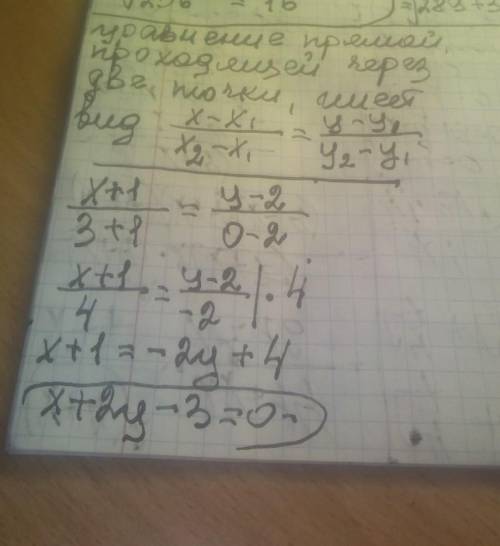 = 16 ) =
уравнение прямой,
проходящей через
две точки, имеет
вид (x-x₁)/(x₂-x₁) = (y-y₁)/(y₂-y₁)
(x+1)/(3+1) = (y-2)/(0-2)
(x+1)/4 = (y-2)/-2 |·4
x+1=-2y+4
x+2y-3=0